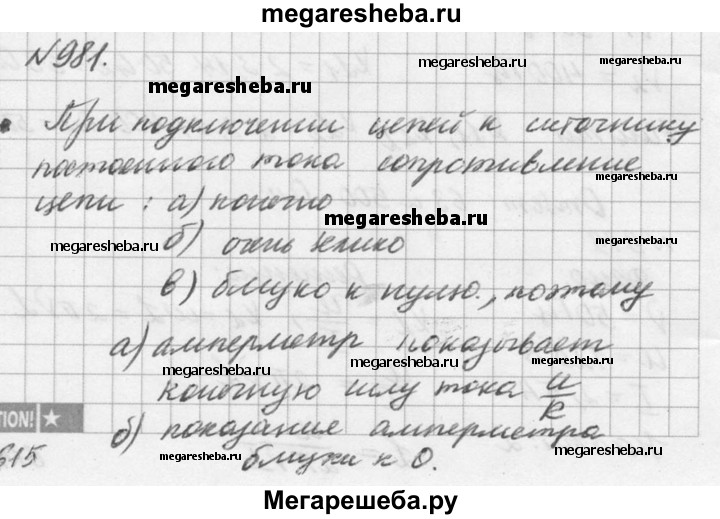 megaresheba.ru
N981.
megaresheba.ru
megaresheba.ru
megaresheba.ru
При подключении цепей к источнику
megaresheba.ru
постоянного тока сопротивление
megaresheba.ru
цепи: а) конечно
megaresheba.ru
б) очень велико
megaresheba.ru
megaresheba.ru
в) близко к нулю., поэтому
а) амперметр показывает
megaresheba.ru
megaresheba.ru
конечную силу тока u/R
TION!
б) показания амперметра
megaresheba.ru
615
megaresheba.ru
близки к 0.
megaresheba.ru
Мегарешеба.ру